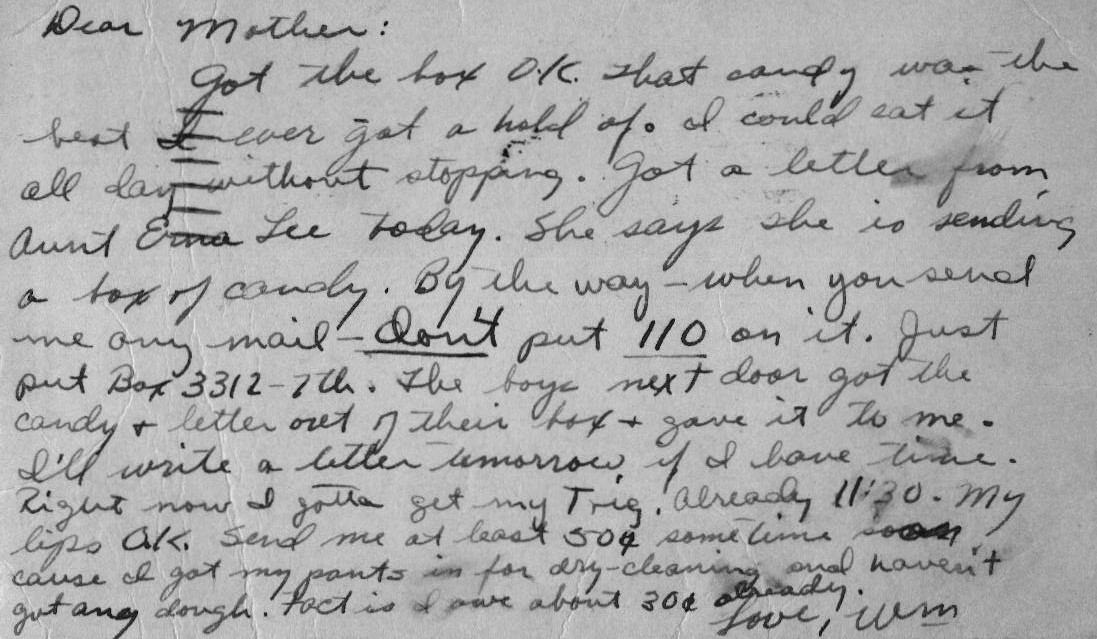 Dear Mother:
Got the box O.K. That candy was the
best I ever got a hold of. I could eat it
all day without stopping. Got a letter from
Aunt Erna Lee today. She says she is sending
a box of candy. By the way - when you send
me any mail - don't put 110 on it. Just
put Box 3312 - 7th. The boys next door got the
candy + letter out of their box + gave it to me.
I'll write a letter tomorrow if I have time.
Right now I gotta get my Trig. Already 11:30. My
lips O.K. Send me at least 50¢ sometime soon
cause I got my pants in for dry-cleaning and haven't
got any dough. Fact is I owe about 30¢ already.
Love, Wm